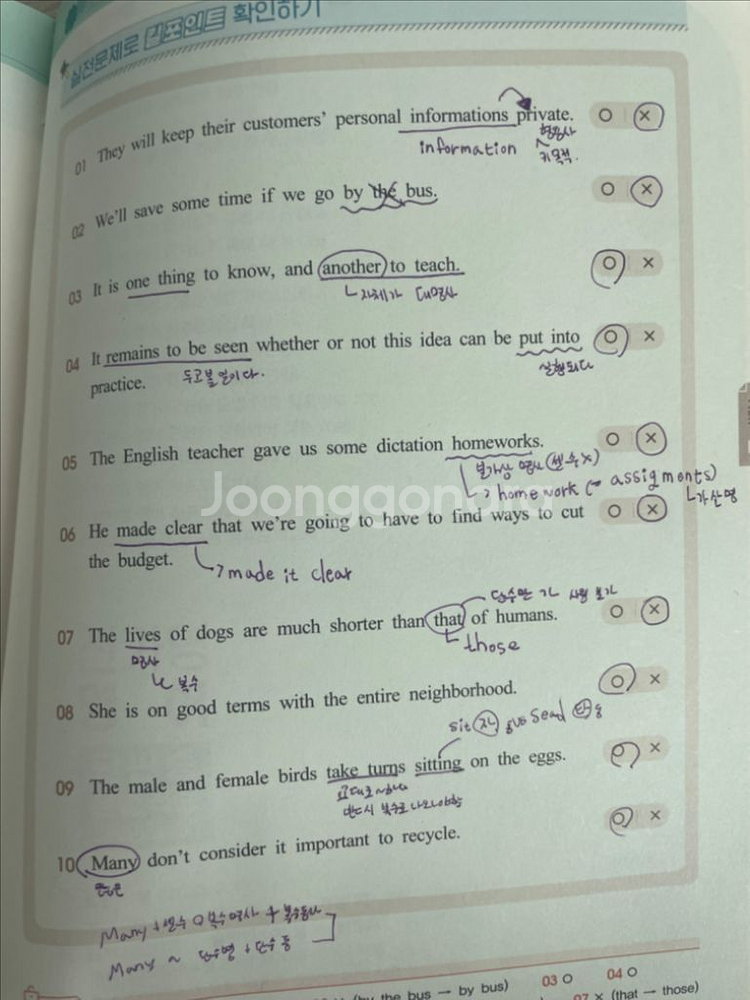 실전문제로 빈포인트 확인하기
01 They will keep their customers' personal informations private. O X
information 형용사
02 We'll save some time if we go by the bus. O X
03 It is one thing to know, and another to teach. O X
자체가 대명사
04 It remains to be seen whether or not this idea can be put into O X
practice. 두고볼일이다. 실행되다
05 The English teacher gave us some dictation homeworks. O X
불가산 명사(셀수X)
homework (= assigments)
가산명
06 He made clear that we're going to have to find ways to cut O X
the budget. made it clear
07 The lives of dogs are much shorter than that of humans. O X
명사 those
복수
08 She is on good terms with the entire neighborhood. O X
sit 자 sead 타동
09 The male and female birds take turns sitting on the eggs. O X
교대로~하다
반드시 복수로 나와야함
10 Many don't consider it important to recycle. O X
많은
Many + 복수명사 + 복수동사
Many ~ 단수명 + 단수동
the bus → by bus) 03 O 04 O
07 × (that → those)
Joonggon